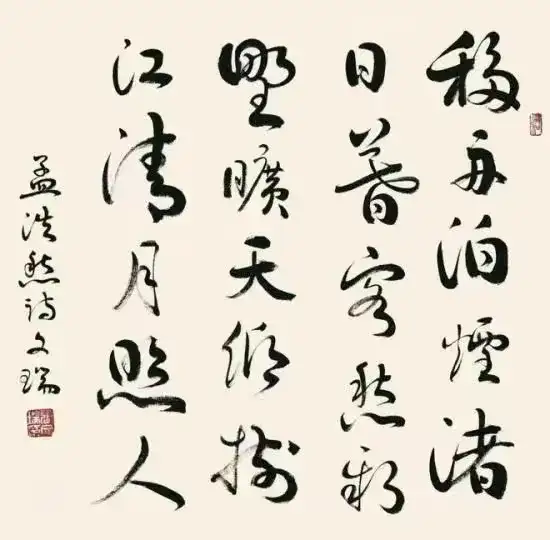 移舟泊煙渚
日暮客愁新
野曠天低樹
江清月照人
孟浩然詩文瑞